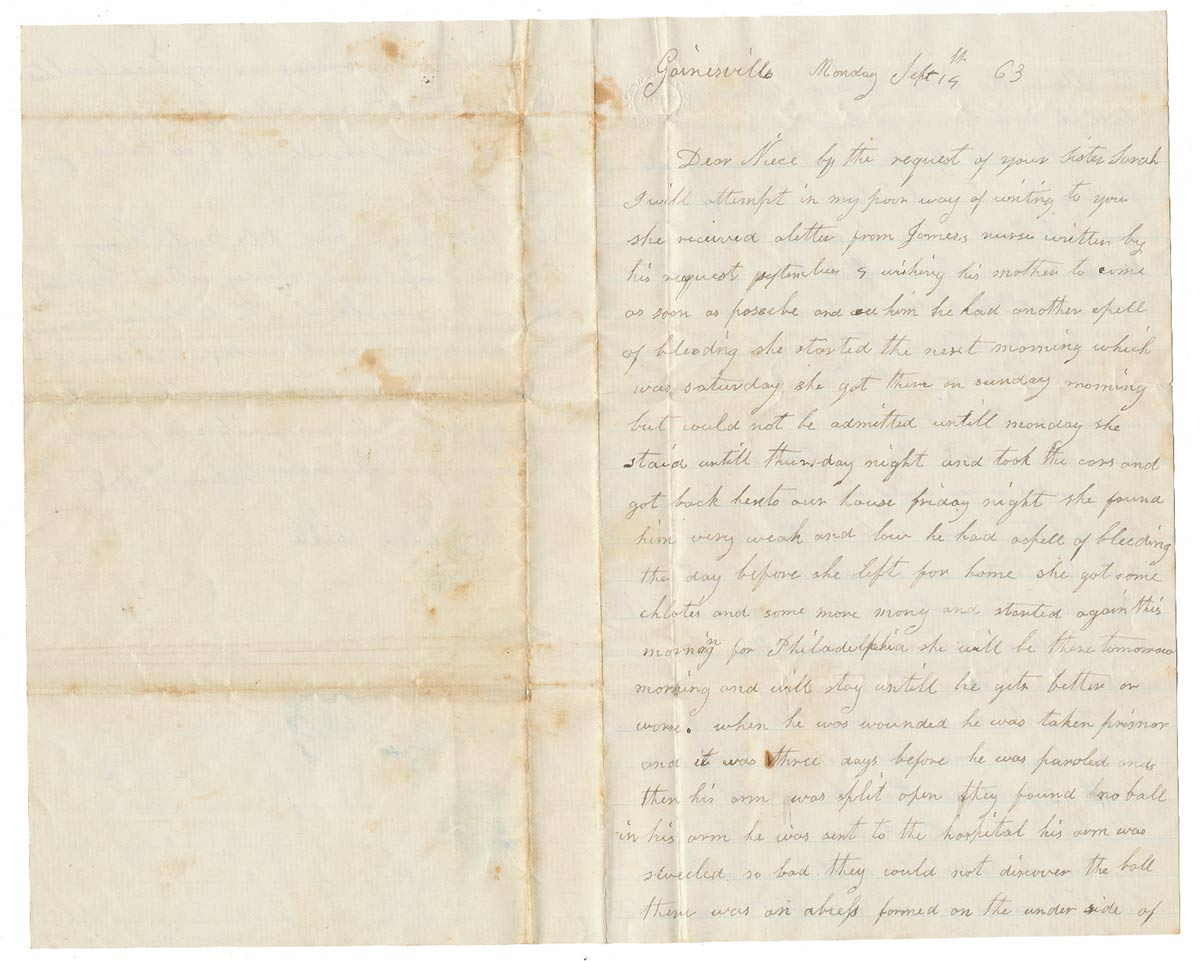 Gainesville Monday Sept 14th 63
Dear Niece by the request of your Sister Sarah
I will attempt in my poor way of writing to you
she recieved a letter from Jameses nurse written by
his request September wishing his mother to come
as soon as possibe and see him he had another spell
of bleeding she started the next morning which
was saturday she got there on sunday morning
but could not be admitted untill monday she
staid untill thursday night and took the cars and
got back here to our house friday night she found
him very weak and low he had a spell of bleeding
the day before she left for home she got some
chlotes and some more mony and started again this
morning for Philadelphia she will be there tomorrow
morning and will stay untill he gets better or
worse. when he was wounded he was taken prisnor
and it was three days before he was paroled and
then his arm was split open they found no ball
in his arm he was sent to the hospital his arm was
sweeled so bad they could not discover the ball
there was an abcess formed on the under side of